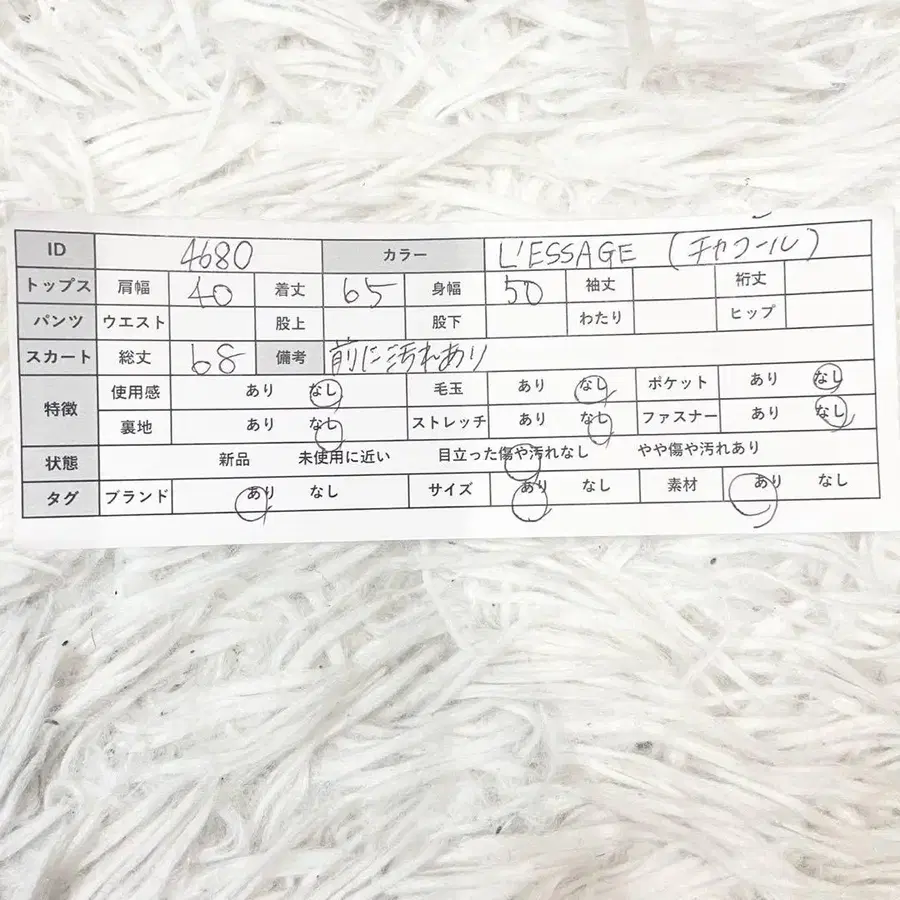 ID 4680 カラー L'ESSAGE (チャコール)
トップス 肩幅 40 着丈 65 身幅 50 袖丈 裄丈
パンツ ウエスト 股上 股下 わたり ヒップ
スカート 総丈 68 備考 前に汚れあり
特徴 使用感 あり なし 毛玉 あり なし ポケット あり なし
裏地 あり なし ストレッチ あり なし ファスナー あり なし
状態 新品 未使用に近い 目立った傷や汚れなし やや傷や汚れあり
タグ ブランド あり なし サイズ あり なし 素材 あり なし